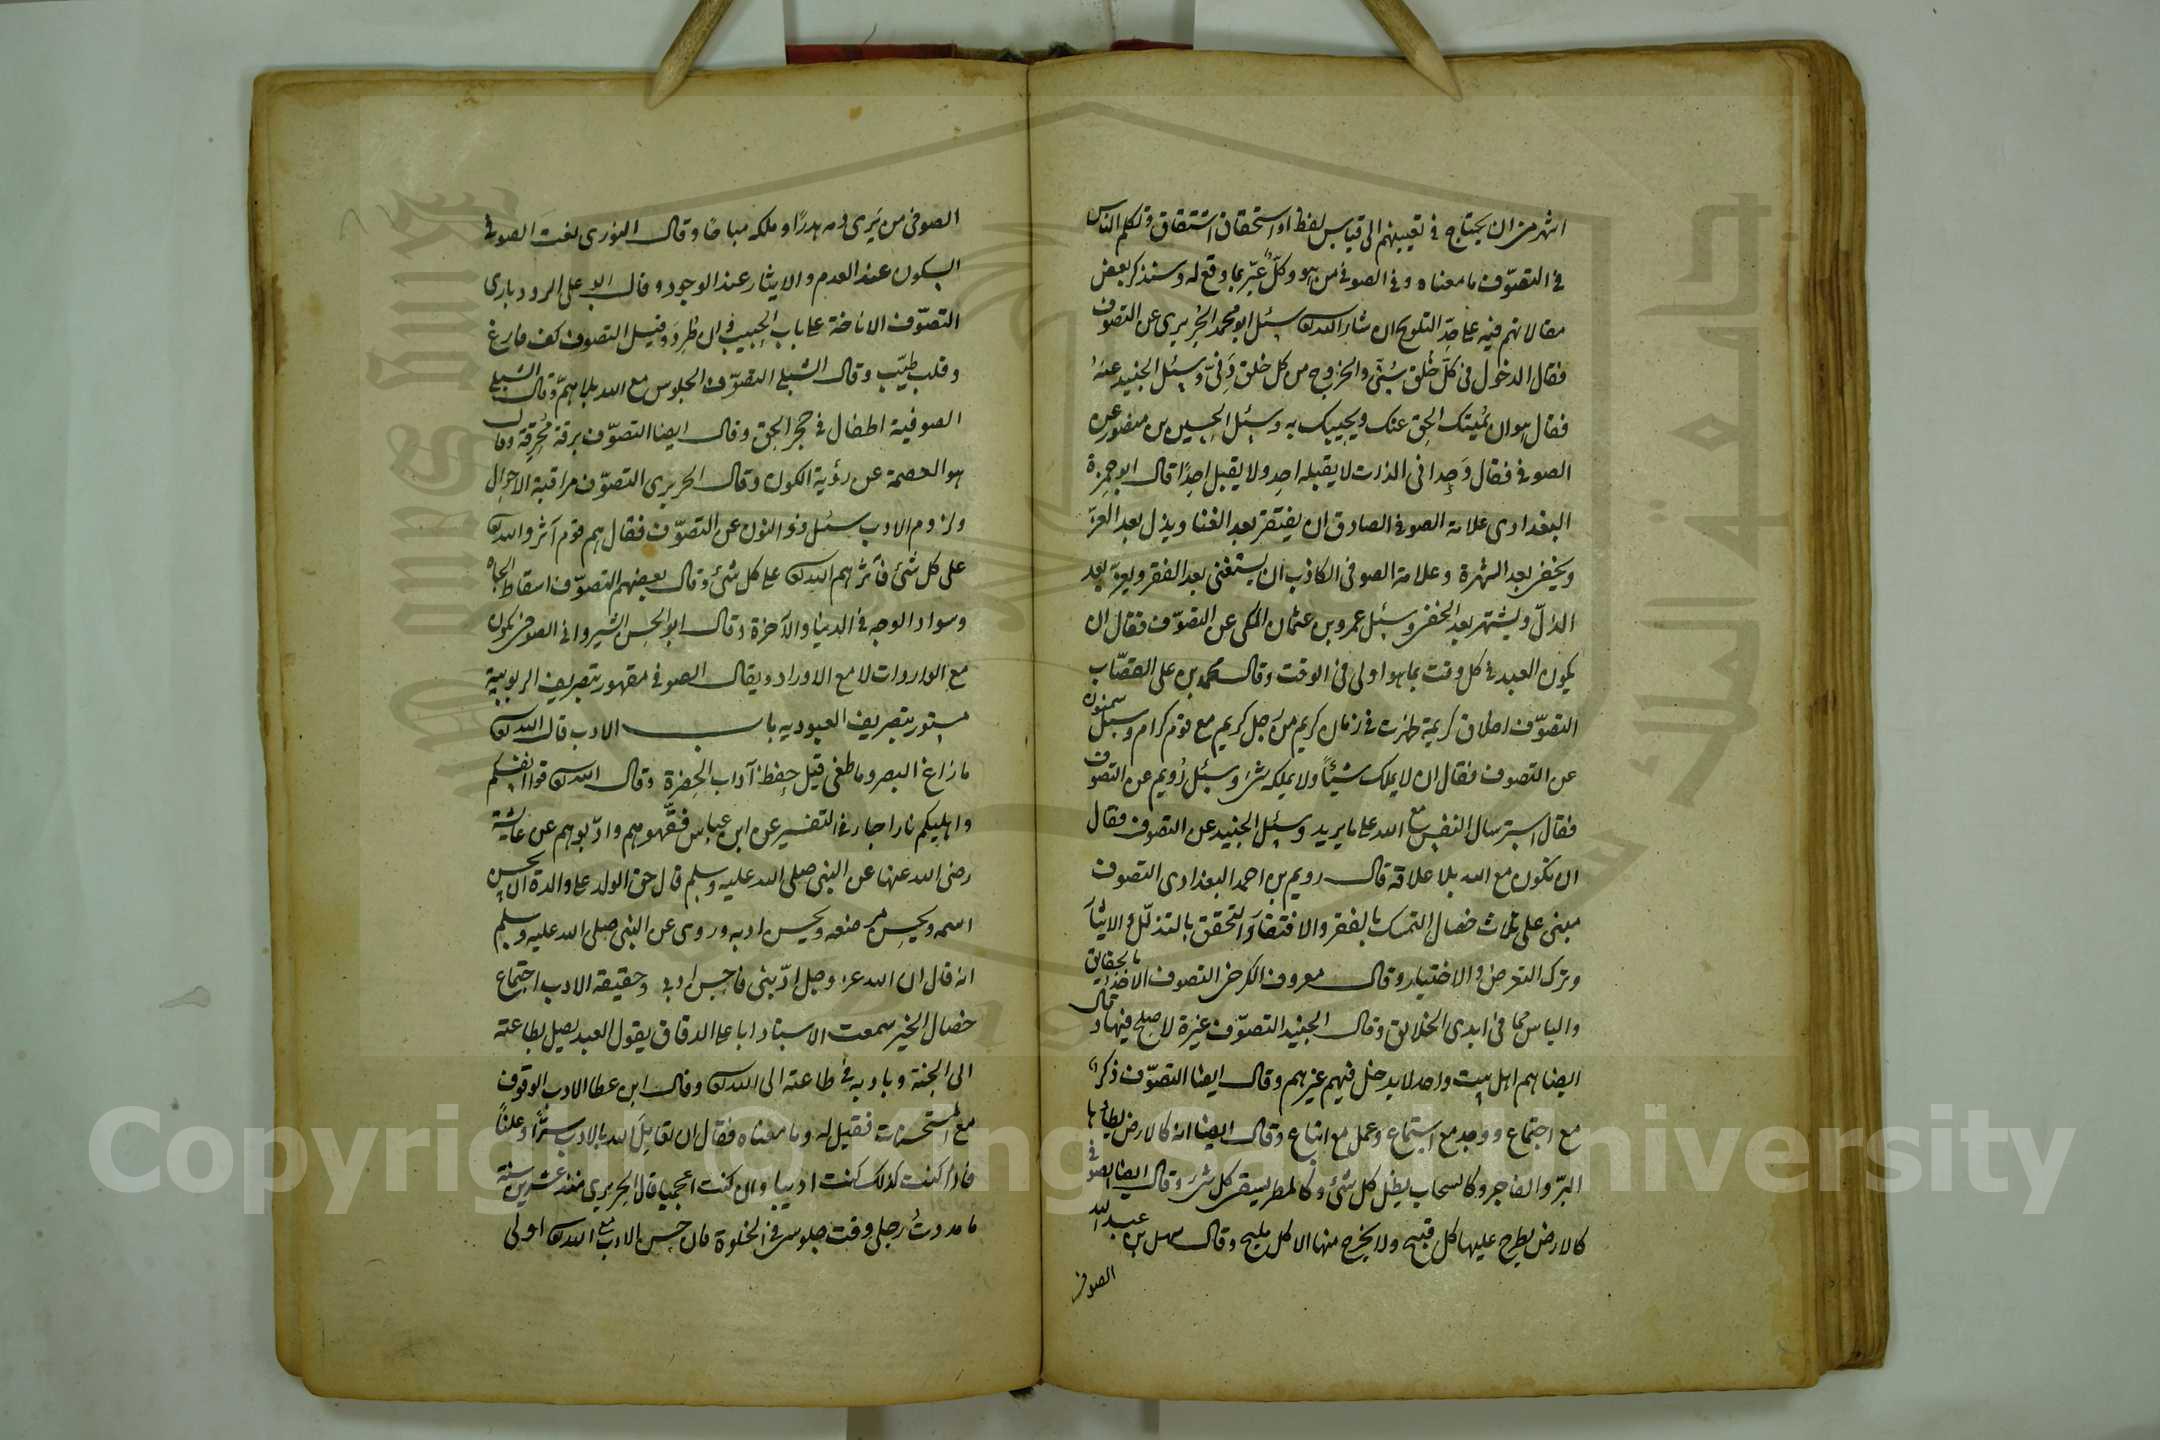 اشهر من ان يحتاج في تعيينهم الى قياس لفظ او استحقاق اشتقاق وتكلم الناس
في التصوّف ما معناه وفي الصوفي من هو وكلٌّ عبّر بما وقع له وسنذكر بعض
مقالاتهم فيه على حدّ التلويح ان شاء الله تع سئل ابو محمد الجُريري عن التصوف
فقال الدخول في كلّ خُلُق سَنيّ والخروج من كل خلق دَنِيّ وسئل الجنيد عنه
فقال هو ان يُميتك الحق عنك ويحييك به وسئل الحسين بن منصور عن
الصوفي فقال وَحدانى الذات لا يقبله احد ولا يقبل احدًا قال ابو حمزة
البغدادى علامة الصوفي الصادق ان يفتقر بعد الغنا ويذل بعد العزّ
ويخفى بعد الشهرة وعلامة الصوفى الكاذب ان يستغنى بعد الفقر ويعزّ بعد
الذلّ ويشتهر بعد الخفى وسئل عمرو بن عثمان المكى عن التصوّف فقال ان
يكون العبد في كل وقت بما هو اولى في الوقت وقال محمد بن على القصّاب
التصوّف اخلاق كريمة ظهرت في زمان كريم من رجل كريم مع قوم كرام وسئل سمنون
عن التصوف فقال ان لا يملك شيئًا ولا يملكه شئ وسئل رُويم عن التصوف
فقال استرسال النفس مع الله على ما يريد وسئل الجنيد عن التصوف فقال
ان تكون مع الله بلا علاقة قال رويم بن احمد البغدادى التصوف
مبنى على ثلاث خصال التمسك بالفقر والافتقار والتحقق بالتذلّل والايثار
وترك التعرض والاختيار وقال معروف الكرخى التصوف الاخذ بالحقايق
والياس مما في ايدى الخلايق وقال الجنيد التصوّف عَنوة لا صلح فيها وقال
ايضا هم اهل بيت واحد لا يدخل فيهم غيرهم وقال ايضا التصوّف ذكر
مع اجتماع ووجد مع استماع وعمل مع اتباع وقال ايضا انه كالارض يطأها
البرّ والفاجر وكالسحاب يظل كل شئ وكالمطر يسقى كل شئ وقال ايضا الصوفي
كالارض يطرح عليها كل قبيح ولا يخرج منها الا كل مليح وقال سهل بن عبد الله
الصوفى
الصوفى من يَرى دمه هدرًا وملكه مباحًا وقال النورى نعت الصوفي
السكون عند العدم والايثار عند الوجود وقال ابو على الرودبارى
التصوّف الاناخة على باب الحبيب وان طُرِدَ وقيل التصوف كف فارغ
وقلب طيّب وقال الشبلى التصوّف الجلوس مع الله بلا همّ وقال الشبلى
الصوفية اطفال في حجر الحق وقال ايضا التصوّف برقة مُحرقة وقال
هو العصمة عن رؤية الكون وقال الجريرى التصوّف مراقبة الاحوال
ولزوم الادب سئل ذو النون عن التصوّف فقال هم قوم آثروا الله تع
على كل شئ فآثرهم الله تع على كل شئ وقال بعضهم التصوّف اسقاط الجاه
وسواد الوجه في الدنيا والاخرة وقال ابو الحسن السيروانى الصوفى يكون
مع الواردات لا مع الاوراد ويقال الصوفي مقهور بتصريف الربوبية
مستور بتصريف العبوديه باب الادب قال الله تع
ما زاغ البصر وما طغى قيل حفظ آداب الحضرة وقال الله تع قوا انفسكم
واهليكم نارا جاء في التفسير عن ابن عباس فقّهوهم وادّبوهم عن عائشة
رضى الله عنها عن النبى صلى الله عليه وسلم قال حق الولد على والده ان يحسن
اسمه ويحسن مرضعه ويحسن ادبه وروى عن النبى صلى الله عليه وسلم
انه قال ان الله عز وجل ادّبنى فاحسن ادبى وحقيقة الادب اجتماع
خصال الخير سمعت الاستاد ابا على الدقاق يقول العبد يصل بطاعته
الى الجنة وبادبه في طاعته الى الله تع وقال ابن عطا الادب الوقوف
مع المستحسنات فقيل له وما معناه فقال ان تعاملَ الله بالادب سرًّا وعلنًا
فاذا كنت كذلك كنت اديبا وان كنت اعجميا قال الجريرى منذ عشرين سنة
ما مددتُ رجلى وقت جلوسى في الخلوة فان حسن الادب مع الله تع اولى
Copyright © King Saud University